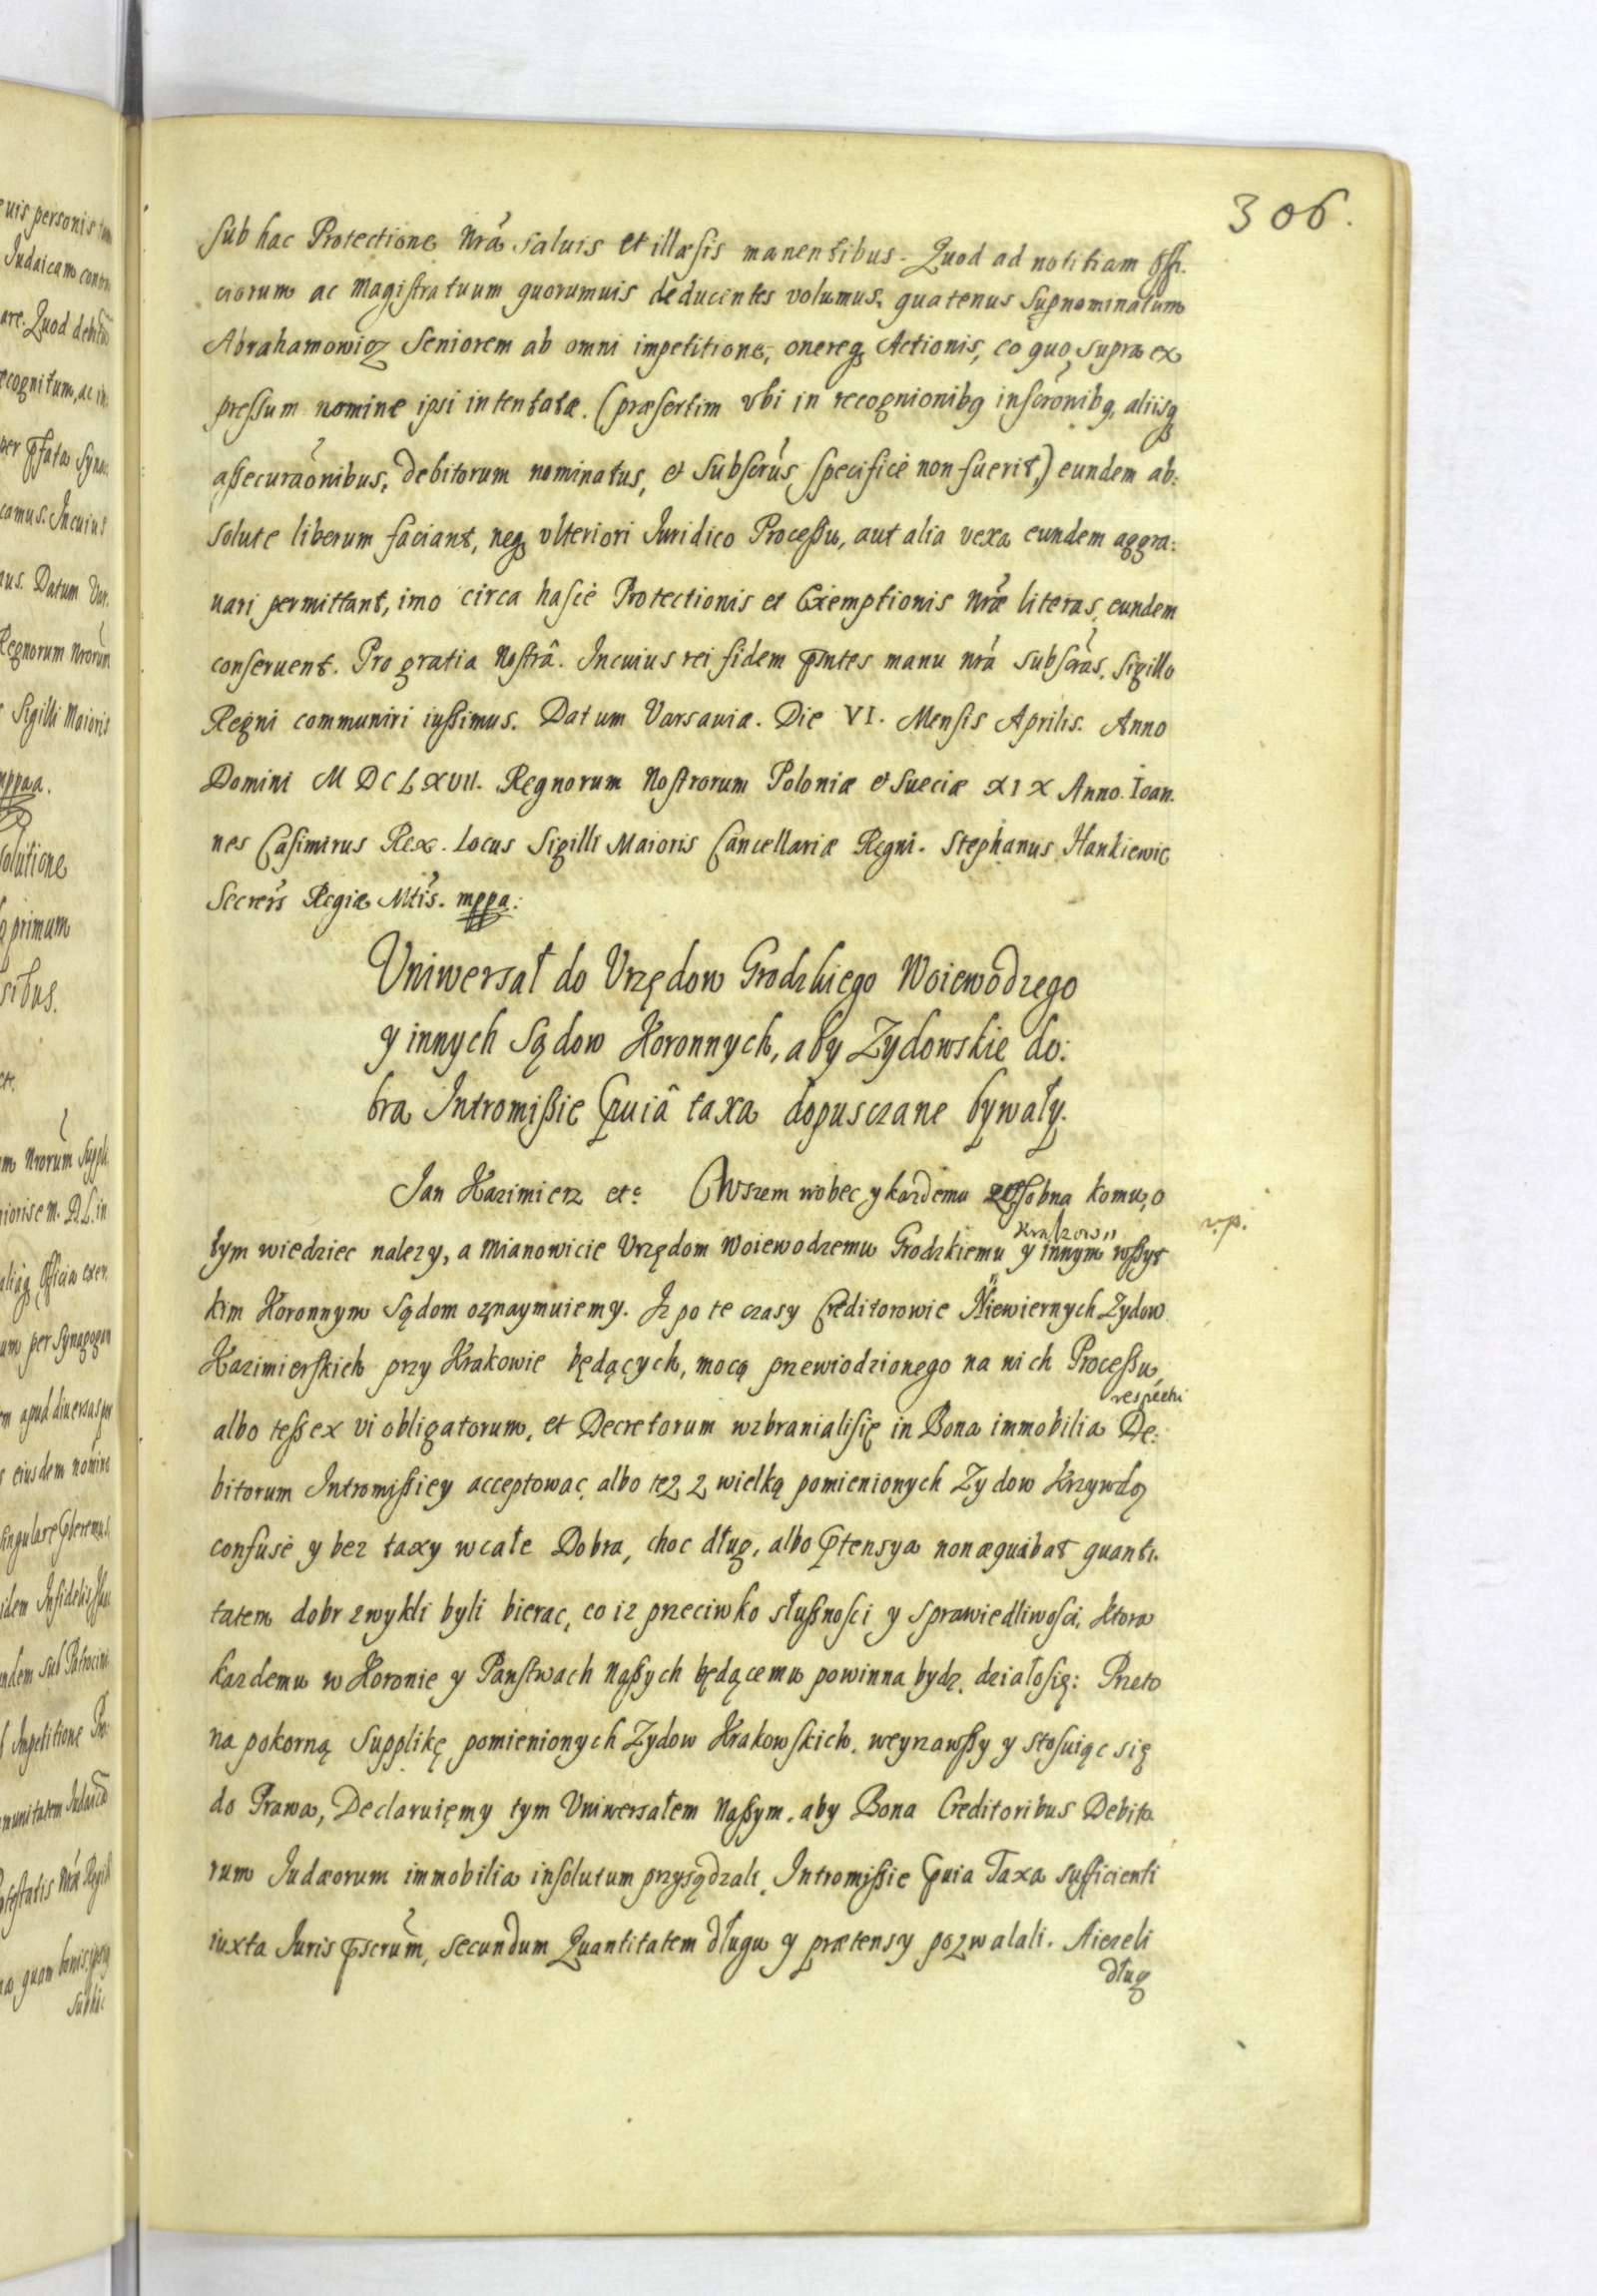 306.
sub hac Protectione Nrã saluis et illæsis manentibus. Quod ad notitiam Offi-
ciorum ac Magistratuum quorumuis deducentes volumus, quatenus supnominatum
Abrahamowicz Seniorem ab omni impetitione, onereq Actionis, eo quo supra ex
pressum nomine ipsi intentatæ. (præsertim vbi in recognionibq inscrõnibq, aliisq
assecuraõnibus, Debitorum nominatus, et Subscrus, specificè non fuerit,) eundem ab:
solute liberum faciant, neq vlteriori Iuridico Processu, aut alia vexa eundem aggra:
uari permittant, imo circa hascè Protectionis et Exemptionis Nræ literas, eundem
conseruent. Pro gratia Nostrâ. Incuius rei fidem pntes manu nrã subscras, Sigillo
Regni communiri iussimus. Datum Varsauiæ. Die VI. Mensis Aprilis. Anno
Domini M DC LXVII. Regnorum Nostrorum Poloniæ et Sueciæ XIX Anno. Ioan.
nes Casimirus Rex. Locus Sigilli Maioris Cancellariæ Regni. Stephanus Hankiewic
Secrers Regiæ Mtis. mppa:
Vniwersał do Vrzędow Grodzkiego Woiewodzego
y innych Sądow Koronnych, aby Zydowskie do:
bra Intromissie præuiâ taxa dopusczane bywały.
Jan Kazimierz etc Wszem wobec y kazdemu zossobna komu, o
v.p.
Krakow
tym wiedziec nalezy, a mianowicie Vrzędom Woiewodzemu Grodzkiemu y innym wssyt
kim Koronnym Sądom oznaymuiemy. Iz po te czasy Creditorowie Niewiernych Zydow
Kazimierskich przy Krakowie będących, mocą przewiodzionego na nich Processu,
respectu
albo tess ex vi obligatorum, et Decretorum wzbranialisię in Bona immobilia De:
bitorum Intromissiey acceptowac, albo tez z wielką pomienionych Zydow Krzywdą
confusè y bez taxy wcałe Dobra, choc dług, albo ptensya non æquabat quanti.
tatem dobr zwykli byli bierac, co iz przeciwko słussnosci y sprawiedliwosci, ktora
kazdemu w Koronie y Panstwach Nassych będącemu powinna bydz, działosię: Przeto
na pokorną Supplikę pomienionych Zydow Krakowskich, weyrzawssy y stosuiąc się
do Prawa, Declaruięmy tym Vniwersałem Nassym, aby Bona Creditoribus Debito
rum Judæorum immobilia insolutum przysądzali, Intromissie præuia Taxa sufficienti
iuxta Iuris pscrum, secundum Quantitatem długu y prætensy pozwalali. Aiezeli
dług